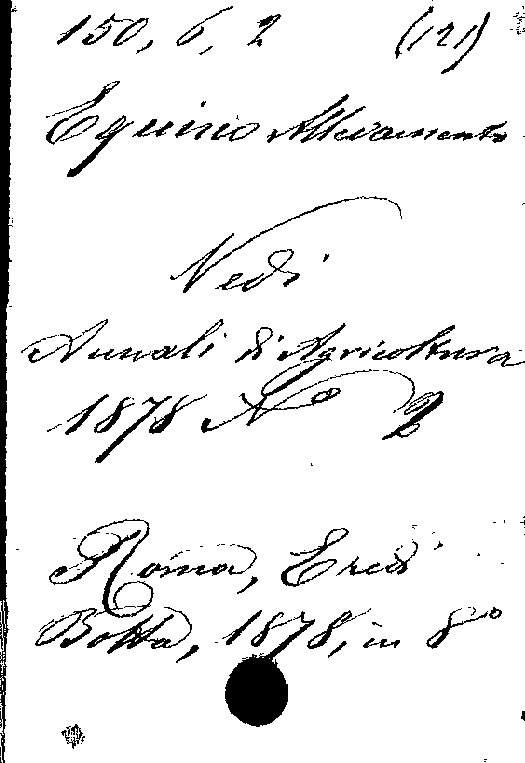 150, 6, 2 (121)
Equino Allevamento
Vedi
Annali di Agricoltura
1878 No 2
Roma, Eredi
Botta, 1878, in 8o